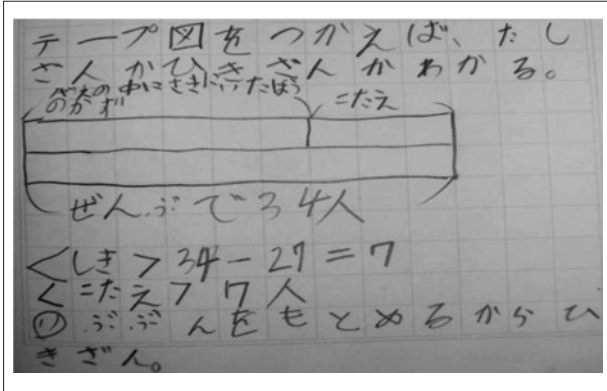 テープ図をつかえば、たし
ざんかひきざんかわかる。
中にさきにいたぼう
のかず
こたえ
ぜんぶで34人
<しき>34-27=7
<こたえ>7人
ぶぶんをもとめるからひ
きざん。